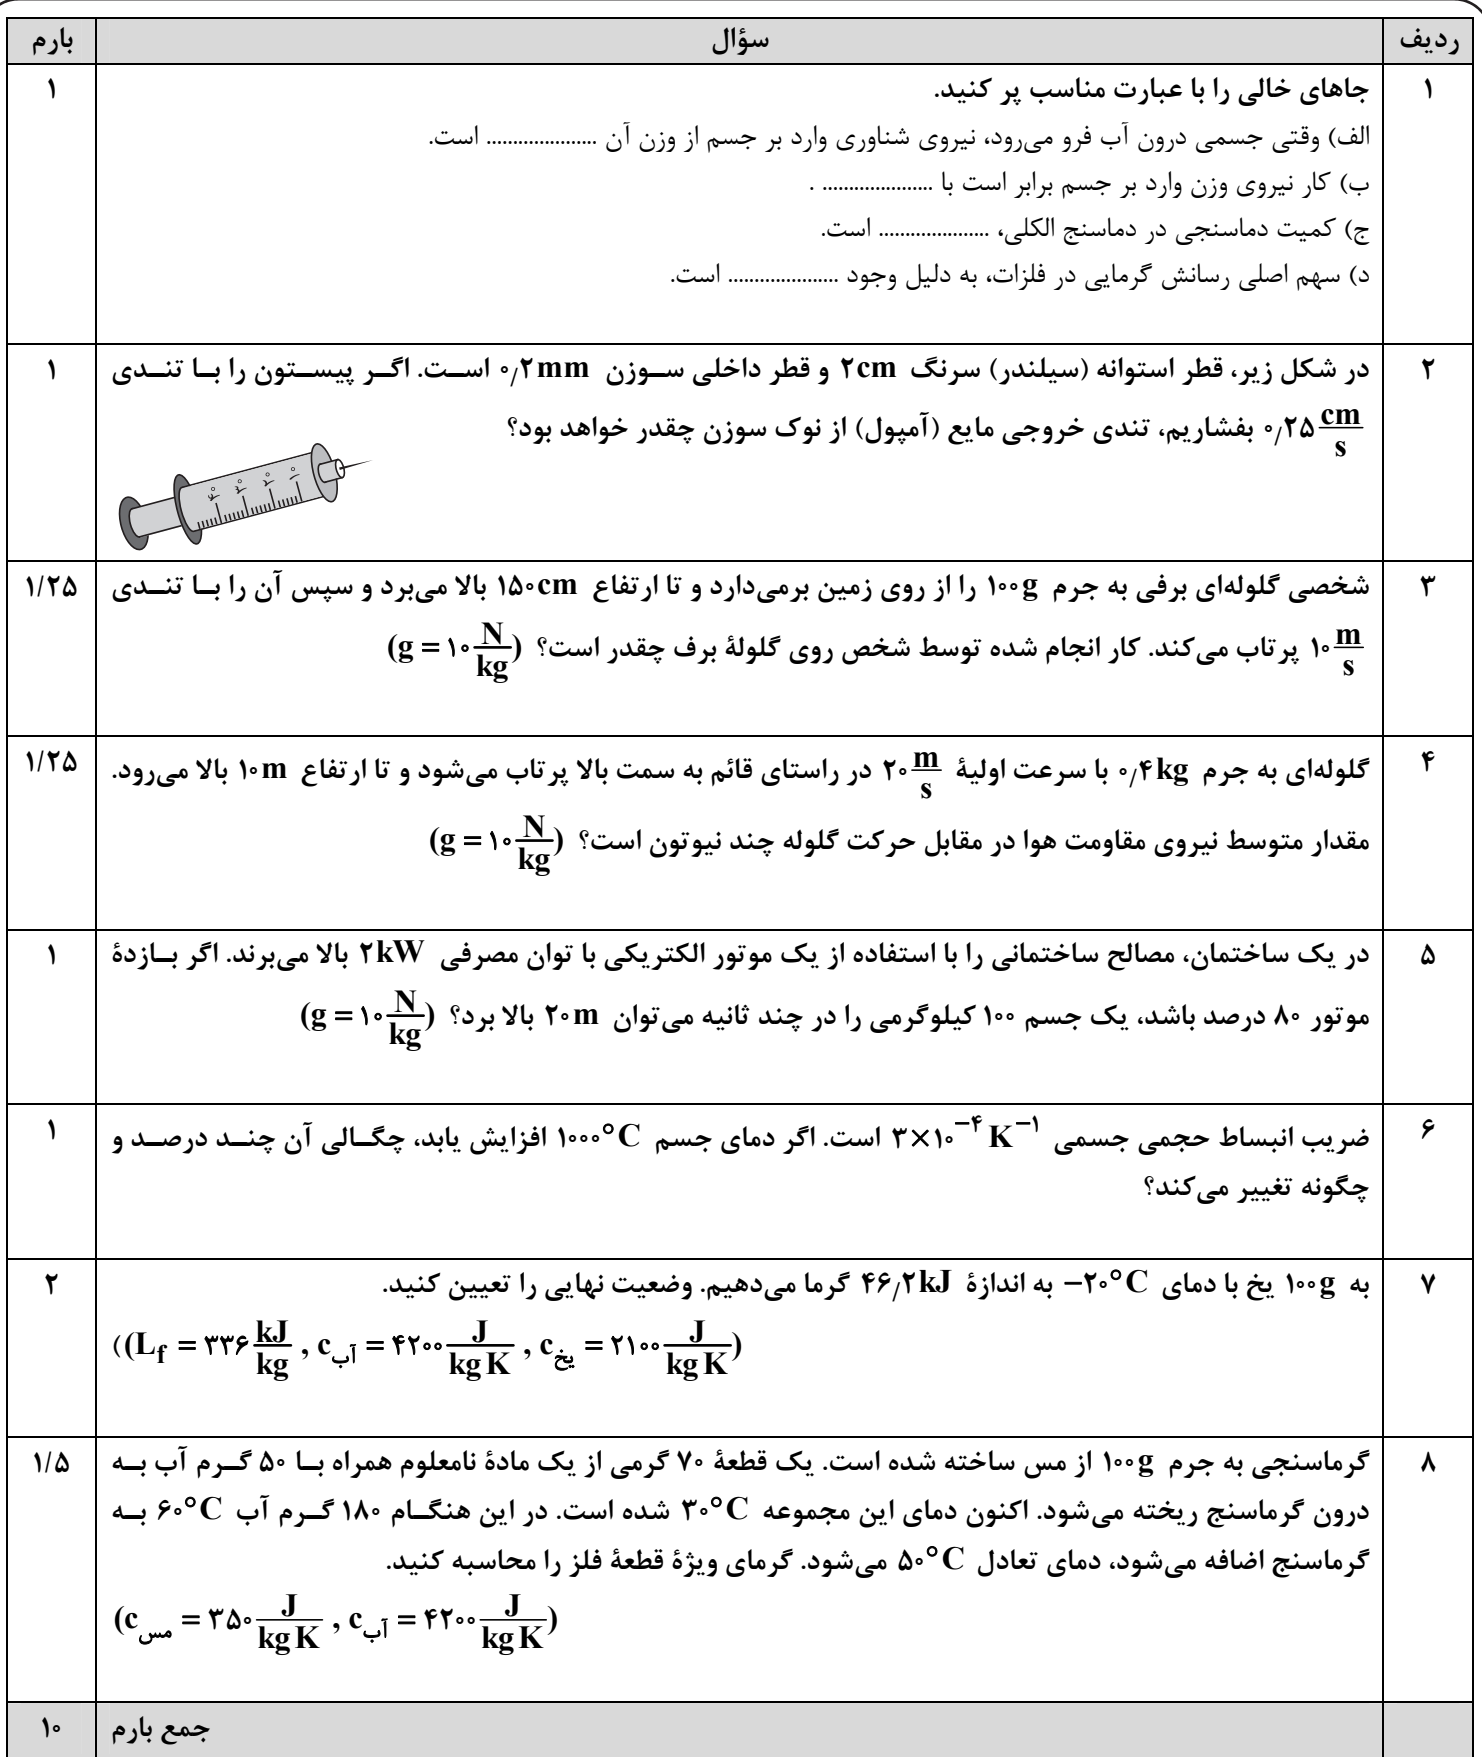 ردیف سؤال بارم
۱ جاهای خالی را با عبارت مناسب پر کنید. ۱
الف) وقتی جسمی درون آب فرو می‌رود، نیروی شناوری وارد بر جسم از وزن آن ..................... است.
ب) کار نیروی وزن وارد بر جسم برابر است با ..................... .
ج) کمیت دماسنجی در دماسنج الکلی، ..................... است.
د) سهم اصلی رسانش گرمایی در فلزات، به دلیل وجود ..................... است.
۲ در شکل زیر، قطر استوانه (سیلندر) سرنگ ۲cm و قطر داخلی سوزن ۰/۲mm است. اگر پیستون را با تندی ۱
۰/۲۵ cm/s بفشاریم، تندی خروجی مایع (آمپول) از نوک سوزن چقدر خواهد بود؟
۴۰ ۳۰ ۲۰ ۱۰
۳ شخصی گلوله‌ای برفی به جرم ۱۰۰g را از روی زمین برمی‌دارد و تا ارتفاع ۱۵۰cm بالا می‌برد و سپس آن را با تندی ۱/۲۵
۱۰ m/s پرتاب می‌کند. کار انجام شده توسط شخص روی گلولهٔ برف چقدر است؟ (g = ۱۰ N/kg)
۴ گلوله‌ای به جرم ۰/۴kg با سرعت اولیهٔ ۲۰ m/s در راستای قائم به سمت بالا پرتاب می‌شود و تا ارتفاع ۱۰m بالا می‌رود. ۱/۲۵
مقدار متوسط نیروی مقاومت هوا در مقابل حرکت گلوله چند نیوتون است؟ (g = ۱۰ N/kg)
۵ در یک ساختمان، مصالح ساختمانی را با استفاده از یک موتور الکتریکی با توان مصرفی ۲kW بالا می‌برند. اگر بازدهٔ ۱
موتور ۸۰ درصد باشد، یک جسم ۱۰۰ کیلوگرمی را در چند ثانیه می‌توان ۲۰m بالا برد؟ (g = ۱۰ N/kg)
۶ ضریب انبساط حجمی جسمی ۳×۱۰⁻⁴ K⁻¹ است. اگر دمای جسم ۱۰۰۰°C افزایش یابد، چگالی آن چند درصد و ۱
چگونه تغییر می‌کند؟
۷ به ۱۰۰g یخ با دمای −۲۰°C به اندازهٔ ۴۶/۲kJ گرما می‌دهیم. وضعیت نهایی را تعیین کنید. ۲
((L_f = ۳۳۶ kJ/kg , c_آب = ۴۲۰۰ J/kg K , c_یخ = ۲۱۰۰ J/kg K)
۸ گرماسنجی به جرم ۱۰۰g از مس ساخته شده است. یک قطعهٔ ۷۰ گرمی از یک مادهٔ نامعلوم همراه با ۵۰ گرم آب به ۱/۵
درون گرماسنج ریخته می‌شود. اکنون دمای این مجموعه ۳۰°C شده است. در این هنگام ۱۸۰ گرم آب ۶۰°C به
گرماسنج اضافه می‌شود، دمای تعادل ۵۰°C می‌شود. گرمای ویژهٔ قطعهٔ فلز را محاسبه کنید.
(c_مس = ۳۵۰ J/kg K , c_آب = ۴۲۰۰ J/kg K)
جمع بارم ۱۰